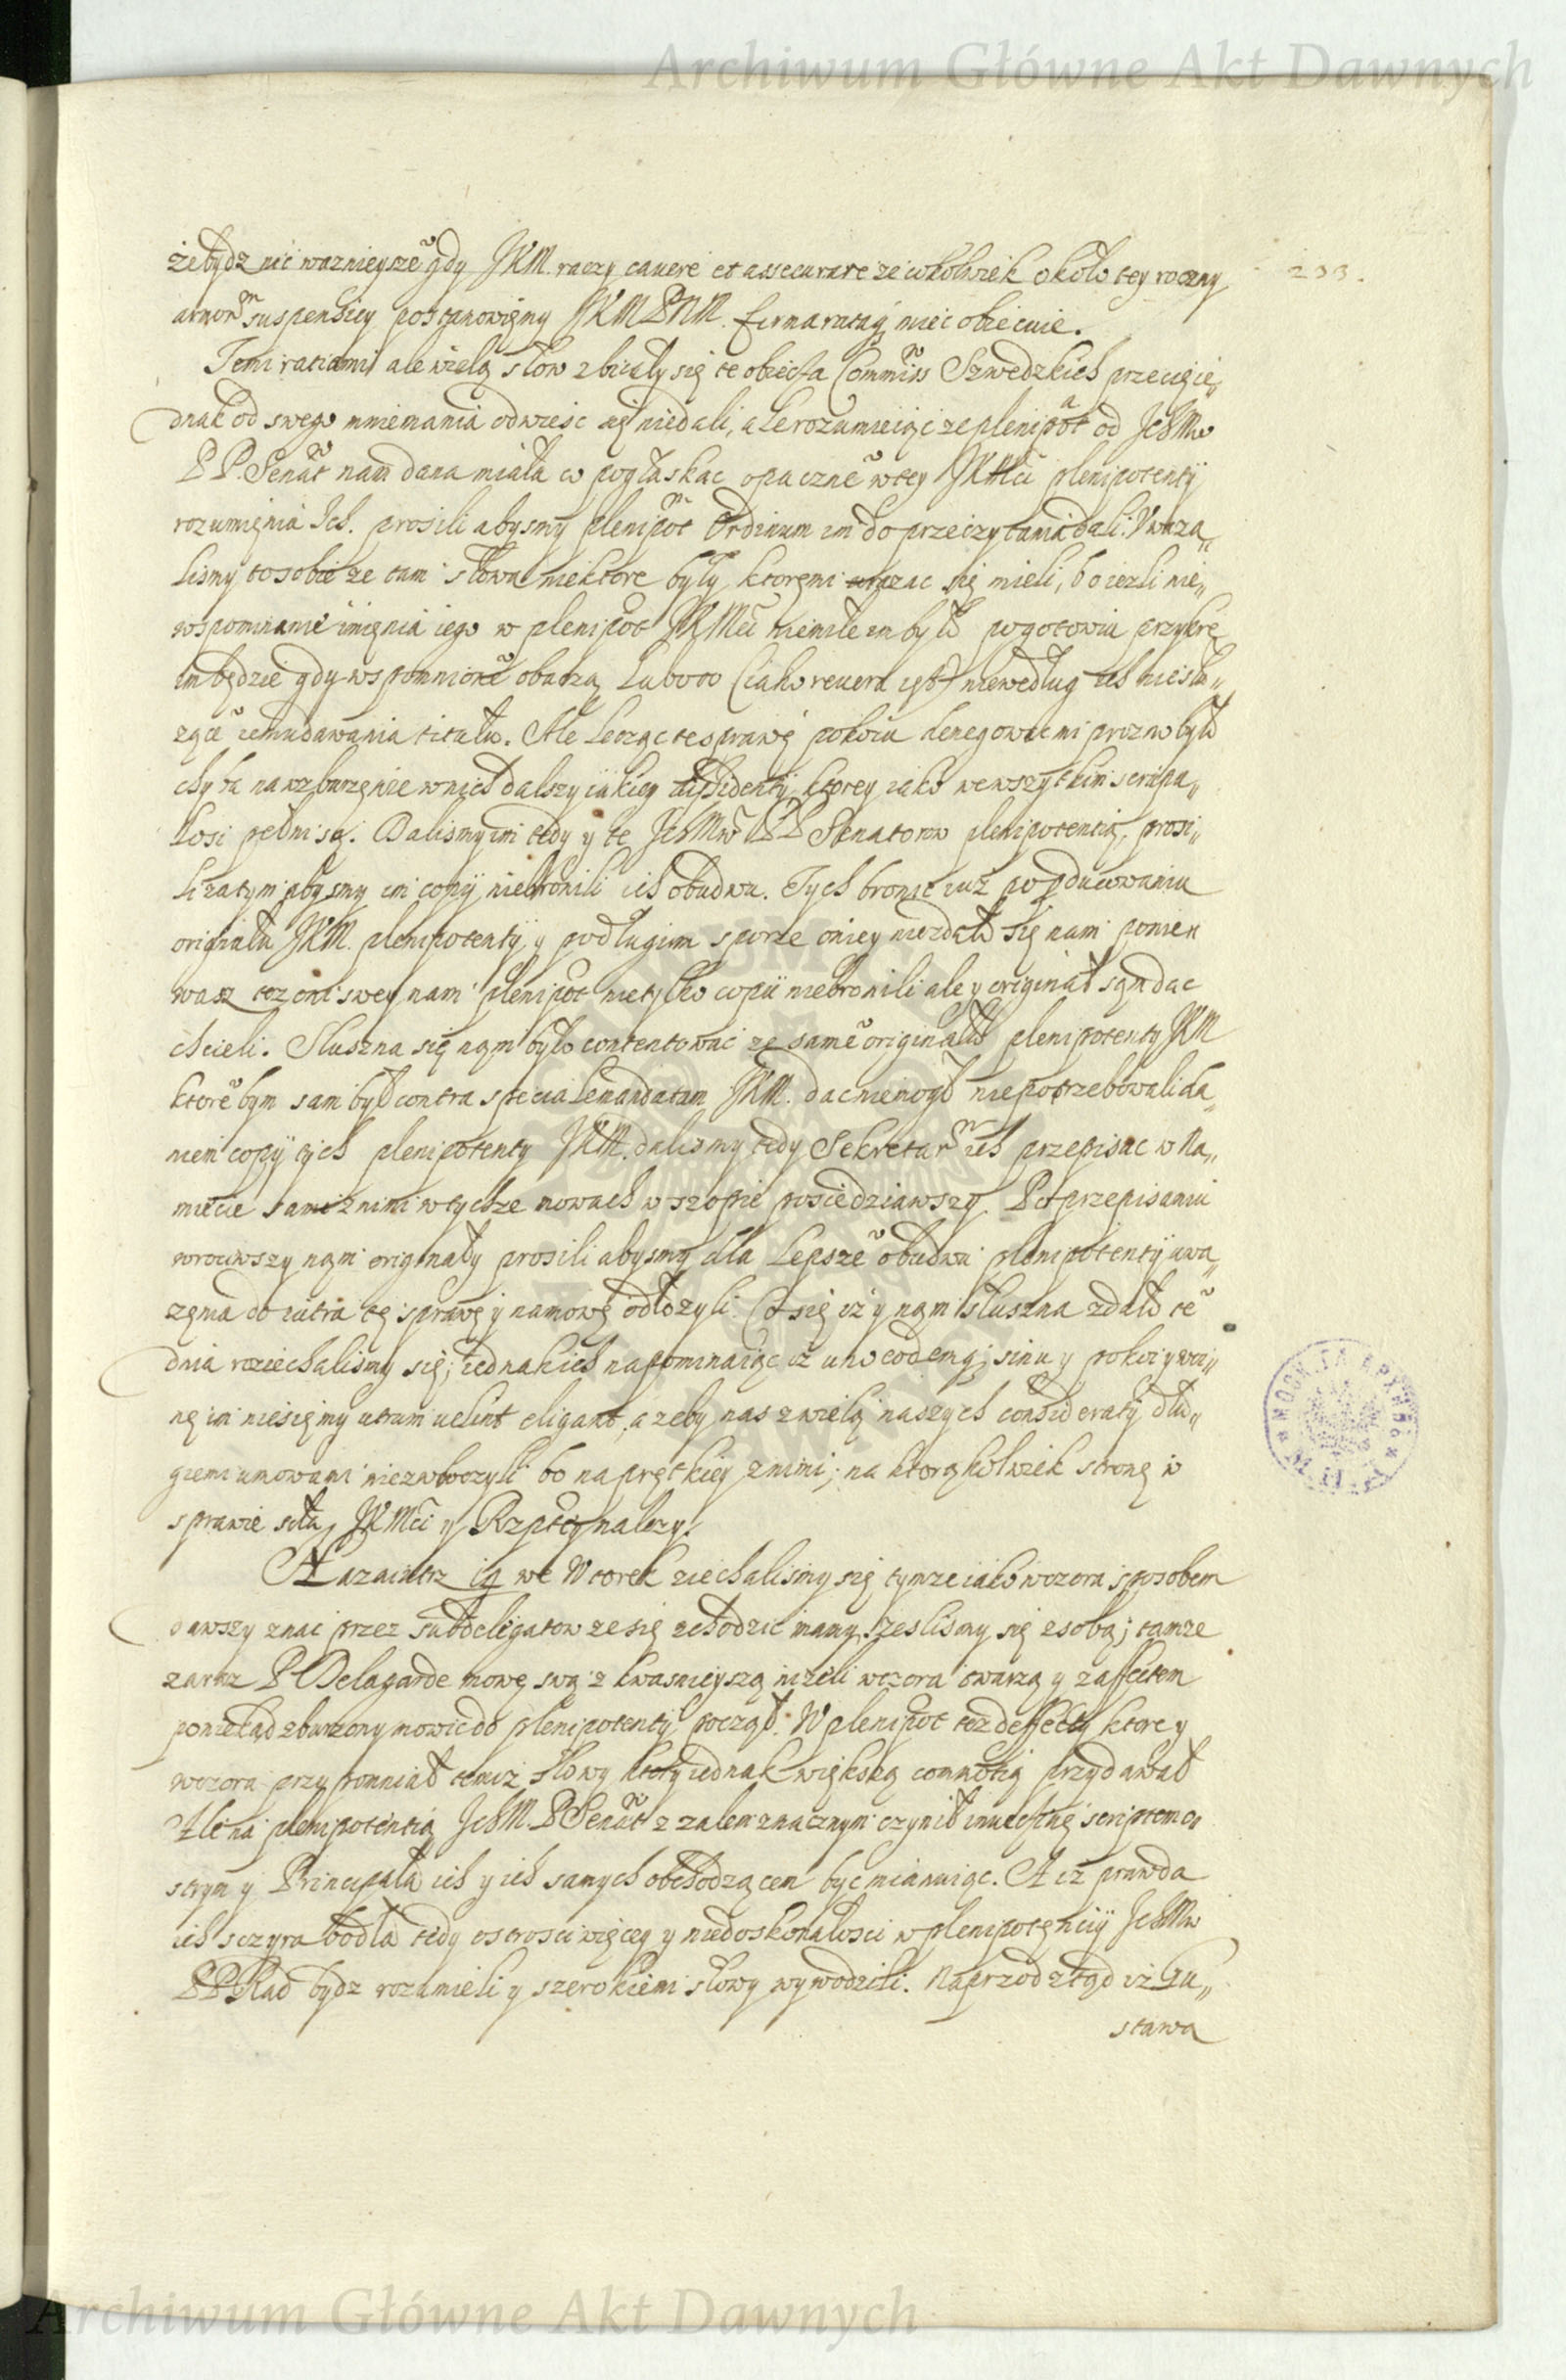 Archiwum Główne Akt Dawnych
233.
że bydz nic wazniejsze͂ gdy JKM. raczy cavere et assecurare ze cokolwiek około tey roczny
armor͂ suspensiey postanowięmy JKM PNM. firma ratag͂ miec obiecuie.
Temi ratiami ale wielą słow zbiiały się te obiecta Commiss͂ Szwedzkich przecię ie„
dnak od swego mniemania odwiesc się niedali, ale rozumieiąc ze plenipot͂ od IchMw
PP. Senat͂ nam dana miała co pogłaskac opaczne͂ w tey JKMci plenipotentÿ
rozumięnia Ich. prosili abysmy plenipot͂ Ordinum im do przeczytania dali. Uwaza„
Lismy to sobie ze tam słowa niektore były ktoremi urazac się mieli, bo iezli nie„
wspominanie imięnia iego w plenipot͂ JKMci niemiłe im było pogotowiu przykre
im będzie gdy wspomnione͂ obaczą Lubo to Ciało revera iest niewedług ich niesłu„
zące͂ iemu dawania titułu. Ale Lecząc te sprawę pokoiu denegowac mi prozno było
chyba na wzburzęnie w nich dalszy iakiey diffidentÿ, ktorey iako we wszytkim scrupu„
Łosi pełni są. Dalismy im tedy y te IchMw͂ PP Senatorow plenipotentią, prosi„
Li zatym abysmy im copÿ niebronili ich obudwu. Tych bronic iuz po pducowaniu
originału JKM. plenipotentÿ y podługim sporze oniey niezdało się nam poniew
wasz tez oni swey nam plenipot͂ nietylko copii niebronili ale y originał sam dac
chcieli. Słuszna się nąm było contentowac ze same͂ originału plenipotenty JKM
ktore͂ bym sam był contra speciale mandatum JKM. dac niemogł niepotrzebowali da„
niem copÿ tych plenipotenty JKM. dalismy tedy Sekretar͂ ich przepisac w Na„
miecie sami z nimi w tychze mowach w szopie posiedziawszy. Po przepisaniu
wrociwszy nąm originały prosili abysmy dla Lepsze͂ obudwu plenipotentÿ uwa„
zęnia do iutra tę sprawę y namowę odłozyli. Co się iz y nąm słuszna zdało te͂
dnia roziechalismy się; iednak ich napominaiąc iz uno eodemq; sinu y pokoi y woi„
nę im niesięmy utrum velint eligant, a zeby nas z wielą naszych consideratÿ dłu„
giemi umowami niezwłoczyli bo na prętkiey z nimi, na ktorąkolwiek stronę w
sprawie siła JKMci y Rzptey nalezy.
Nazaiutrz ig we Wtorek ziechalismy się tymze iako wczora sposobem
dawszy znac przez subdelegatow ze się schodzic mamy, zeslismy się z sobą; tamze
zaraz P Delagarde mowę swą z kwasnieyszą nizeli wczora twarzą y z affectem
poniekąd zburzony mowic do plenipotentÿ począł. W plenipot͂ tez deffecty ktore y
wczora przypomniał temiz słowy ktory iednak większą commotią przydawał
Ale na plenipotentią IchM. P Senat͂ z zalem znacznym czynił invectiuę scriptem o„
strym y Principała ich y ich samych obchodzącem byc mianuiąc. A iz prawda
ich sczyra bodła tedy ostrosci więcey y niedoskonałosci w plenipotęnciÿ IchMw
PP Rad bydz rozumieli y szerokiemi słowy wywodzili. Naprzod ztąd iż Gu„
stawa
Archiwum Główne Akt Dawnych